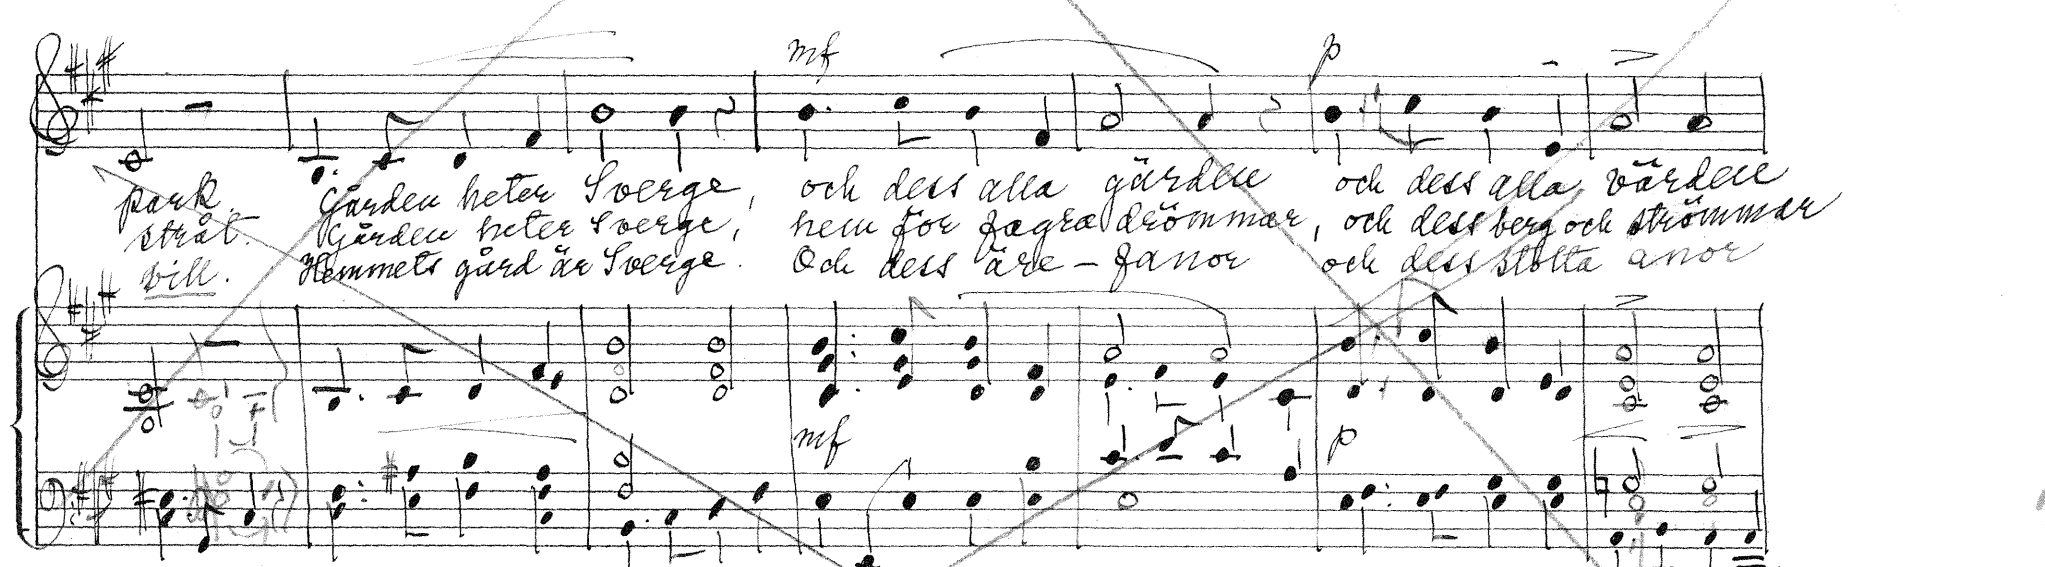 mf p
park. Gården heter Sverge, och dess alla gården och dess alla vården
stråt. Gården heter Sverge, hem för fagra drömmar, och dess berg och strömmar
vill. Hemmets gård är Sverge. Och dess äre-fanor och dess stolta anor
mf p